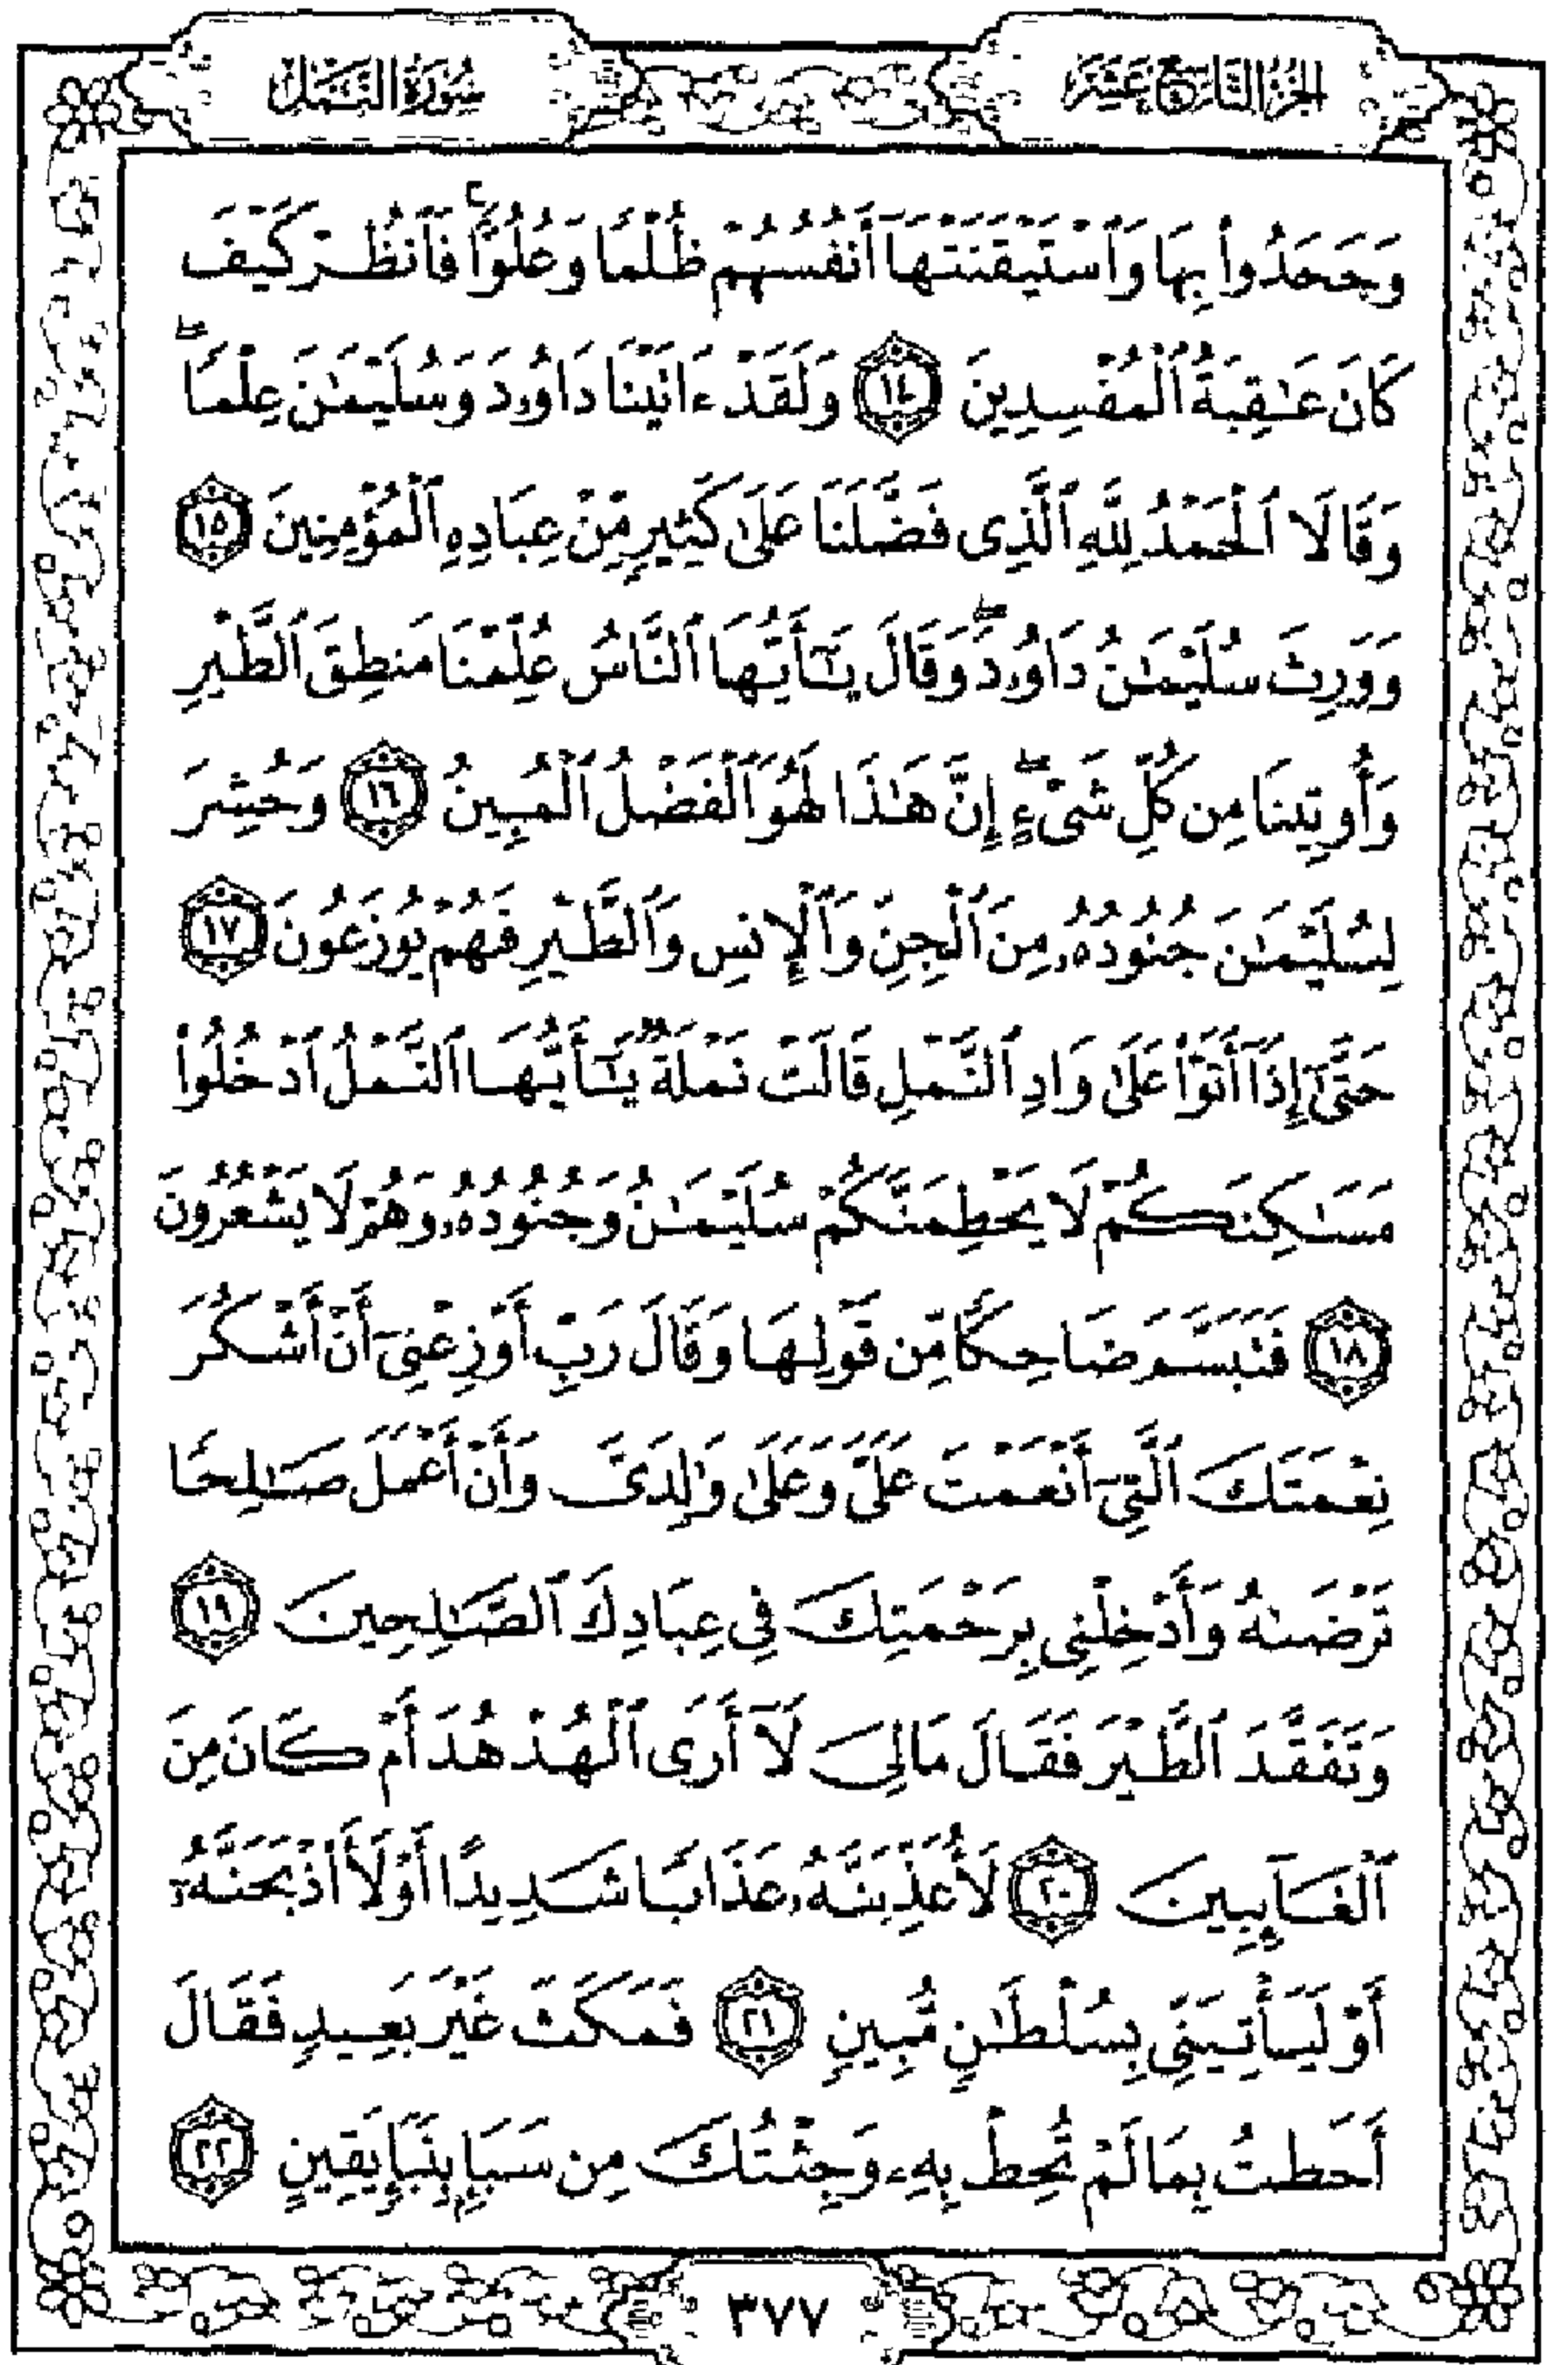 الجزء التاسع عشر
سورة النمل
وَجَحَدُوا۟ بِهَا وَٱسْتَيْقَنَتْهَآ أَنفُسُهُمْ ظُلْمًا وَعُلُوًّا ۚ فَٱنظُرْ كَيْفَ
كَانَ عَـٰقِبَةُ ٱلْمُفْسِدِينَ ١٤ وَلَقَدْ ءَاتَيْنَا دَاوُۥدَ وَسُلَيْمَـٰنَ عِلْمًا ۖ
وَقَالَا ٱلْحَمْدُ لِلَّهِ ٱلَّذِى فَضَّلَنَا عَلَىٰ كَثِيرٍ مِّنْ عِبَادِهِ ٱلْمُؤْمِنِينَ ١٥
وَوَرِثَ سُلَيْمَـٰنُ دَاوُۥدَ ۖ وَقَالَ يَـٰٓأَيُّهَا ٱلنَّاسُ عُلِّمْنَا مَنطِقَ ٱلطَّيْرِ
وَأُوتِينَا مِن كُلِّ شَىْءٍ ۖ إِنَّ هَـٰذَا لَهُوَ ٱلْفَضْلُ ٱلْمُبِينُ ١٦ وَحُشِرَ
لِسُلَيْمَـٰنَ جُنُودُهُۥ مِنَ ٱلْجِنِّ وَٱلْإِنسِ وَٱلطَّيْرِ فَهُمْ يُوزَعُونَ ١٧
حَتَّىٰٓ إِذَآ أَتَوْا۟ عَلَىٰ وَادِ ٱلنَّمْلِ قَالَتْ نَمْلَةٌ يَـٰٓأَيُّهَا ٱلنَّمْلُ ٱدْخُلُوا۟
مَسَـٰكِنَكُمْ لَا يَحْطِمَنَّكُمْ سُلَيْمَـٰنُ وَجُنُودُهُۥ وَهُمْ لَا يَشْعُرُونَ
١٨ فَتَبَسَّمَ ضَاحِكًا مِّن قَوْلِهَا وَقَالَ رَبِّ أَوْزِعْنِىٓ أَنْ أَشْكُرَ
نِعْمَتَكَ ٱلَّتِىٓ أَنْعَمْتَ عَلَىَّ وَعَلَىٰ وَٰلِدَىَّ وَأَنْ أَعْمَلَ صَـٰلِحًا
تَرْضَىٰهُ وَأَدْخِلْنِى بِرَحْمَتِكَ فِى عِبَادِكَ ٱلصَّـٰلِحِينَ ١٩
وَتَفَقَّدَ ٱلطَّيْرَ فَقَالَ مَالِىَ لَآ أَرَى ٱلْهُدْهُدَ أَمْ كَانَ مِنَ
ٱلْغَآئِبِينَ ٢٠ لَأُعَذِّبَنَّهُۥ عَذَابًا شَدِيدًا أَوْ لَأَا۟ذْبَحَنَّهُۥٓ
أَوْ لَيَأْتِيَنِّى بِسُلْطَـٰنٍ مُّبِينٍ ٢١ فَمَكَثَ غَيْرَ بَعِيدٍ فَقَالَ
أَحَطتُ بِمَا لَمْ تُحِطْ بِهِۦ وَجِئْتُكَ مِن سَبَإٍۭ بِنَبَإٍ يَقِينٍ ٢٢
٣٧٧